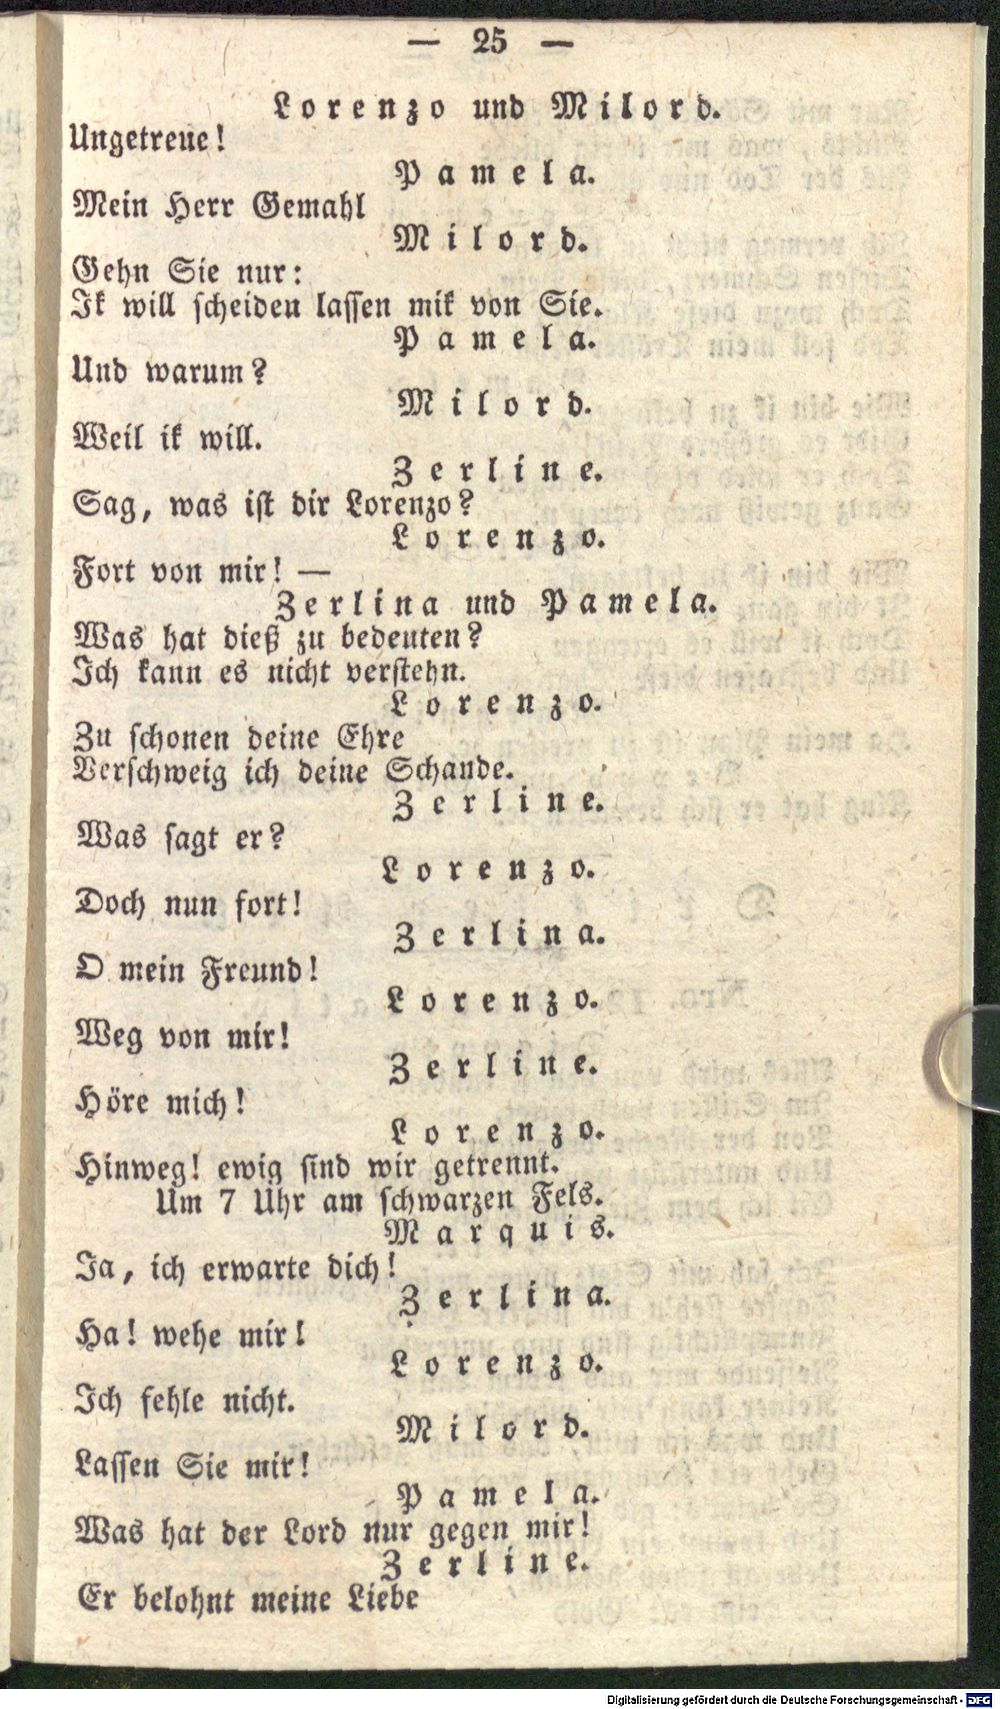 — 25 —
Lorenzo und Milord.
Ungetreue!
Pamela.
Mein Herr Gemahl
Milord.
Gehn Sie nur:
Ik will scheiden lassen mik von Sie.
Pamela.
Und warum?
Milord.
Weil ik will.
Zerline.
Sag, was ist dir Lorenzo?
Lorenzo.
Fort von mir! —
Zerlina und Pamela.
Was hat dieß zu bedeuten?
Ich kann es nicht verstehn.
Lorenzo.
Zu schonen deine Ehre
Verschweig ich deine Schande.
Zerline.
Was sagt er?
Lorenzo.
Doch nun fort!
Zerlina.
O mein Freund!
Lorenzo.
Weg von mir!
Zerline.
Höre mich!
Lorenzo.
Hinweg! ewig sind wir getrennt.
Um 7 Uhr am schwarzen Fels.
Marquis.
Ja, ich erwarte dich!
Zerlina.
Ha! wehe mir!
Lorenzo.
Ich fehle nicht.
Milord.
Lassen Sie mir!
Pamela.
Was hat der Lord nur gegen mir!
Zerline.
Er belohnt meine Liebe
Digitalisierung gefördert durch die Deutsche Forschungsgemeinschaft - DFG